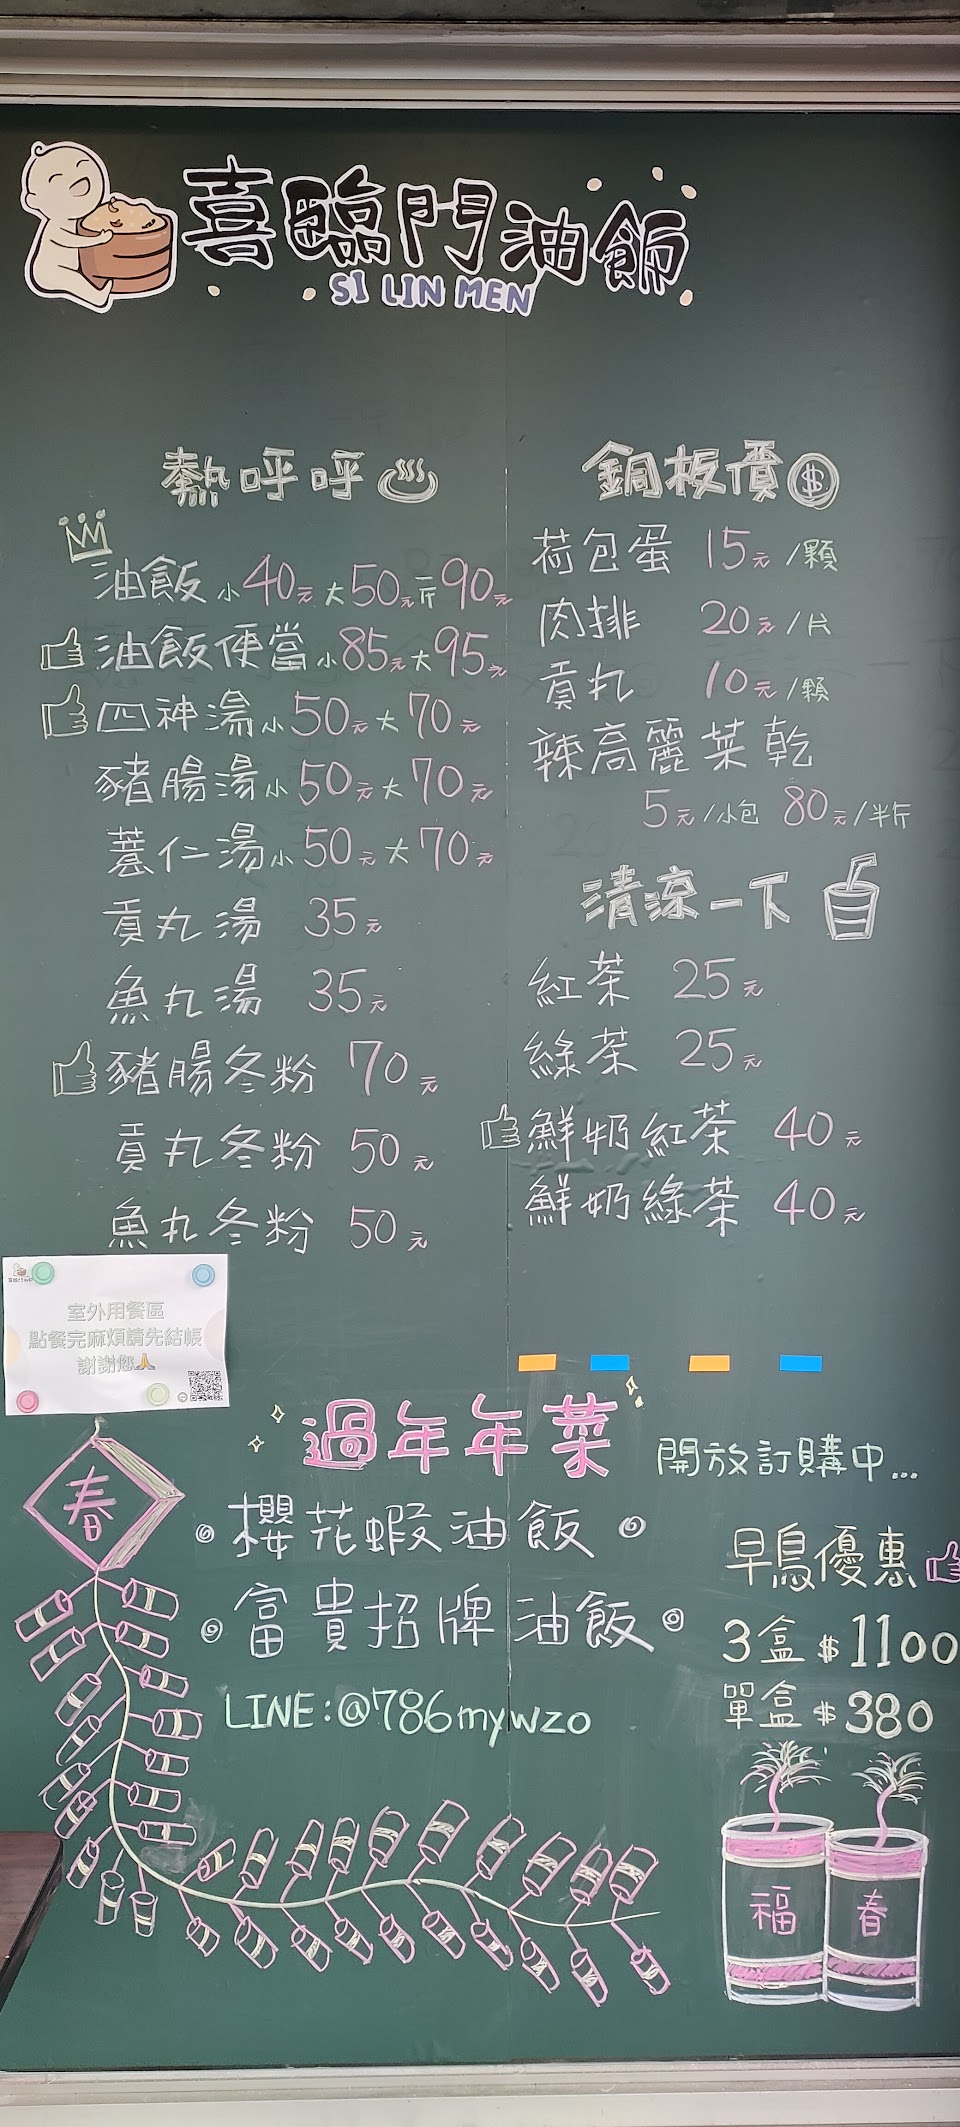 喜臨門油飯
SI LIN MEN
熱呼呼
油飯 小40元 大50元 斤90元
油飯便當 小85元 大95元
四神湯 小50元 大70元
豬腸湯 小50元 大70元
薏仁湯 小50元 大70元
貢丸湯 35元
魚丸湯 35元
豬腸冬粉 70元
貢丸冬粉 50元
魚丸冬粉 50元
銅板價$
荷包蛋 15元/顆
肉排 20元/片
貢丸 10元/顆
辣高麗菜乾
5元/小包 80元/半斤
清涼一下
紅茶 25元
綠茶 25元
鮮奶紅茶 40元
鮮奶綠茶 40元
室外用餐區
點餐完麻煩請先結帳
謝謝您🙏
過年年菜 開放訂購中...
春
櫻花蝦油飯
富貴招牌油飯
LINE:@786mywzo
早鳥優惠
3盒 $1100
單盒 $380
福
春